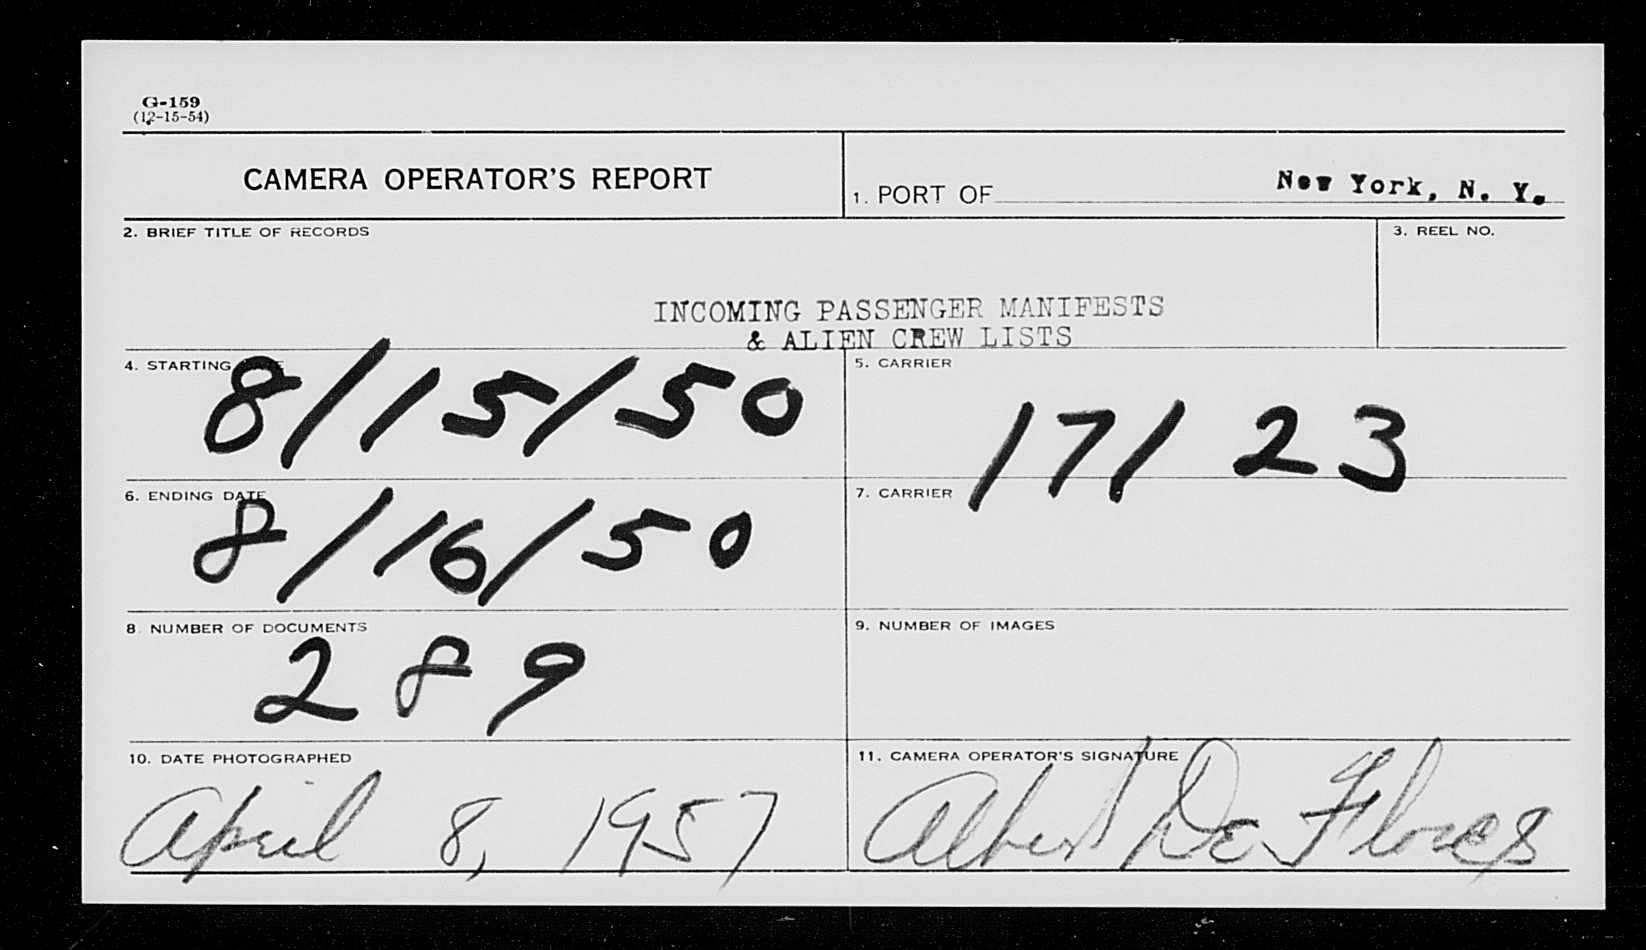 G-159
(12-15-54)
CAMERA OPERATOR'S REPORT
1. PORT OF New York, N. Y.
2. BRIEF TITLE OF RECORDS
3. REEL NO.
INCOMING PASSENGER MANIFESTS
& ALIEN CREW LISTS
4. STARTING DATE
8/15/50
5. CARRIER
17123
6. ENDING DATE
8/16/50
7. CARRIER
8. NUMBER OF DOCUMENTS
289
9. NUMBER OF IMAGES
10. DATE PHOTOGRAPHED
April 8, 1957
11. CAMERA OPERATOR'S SIGNATURE
Albert De Flores